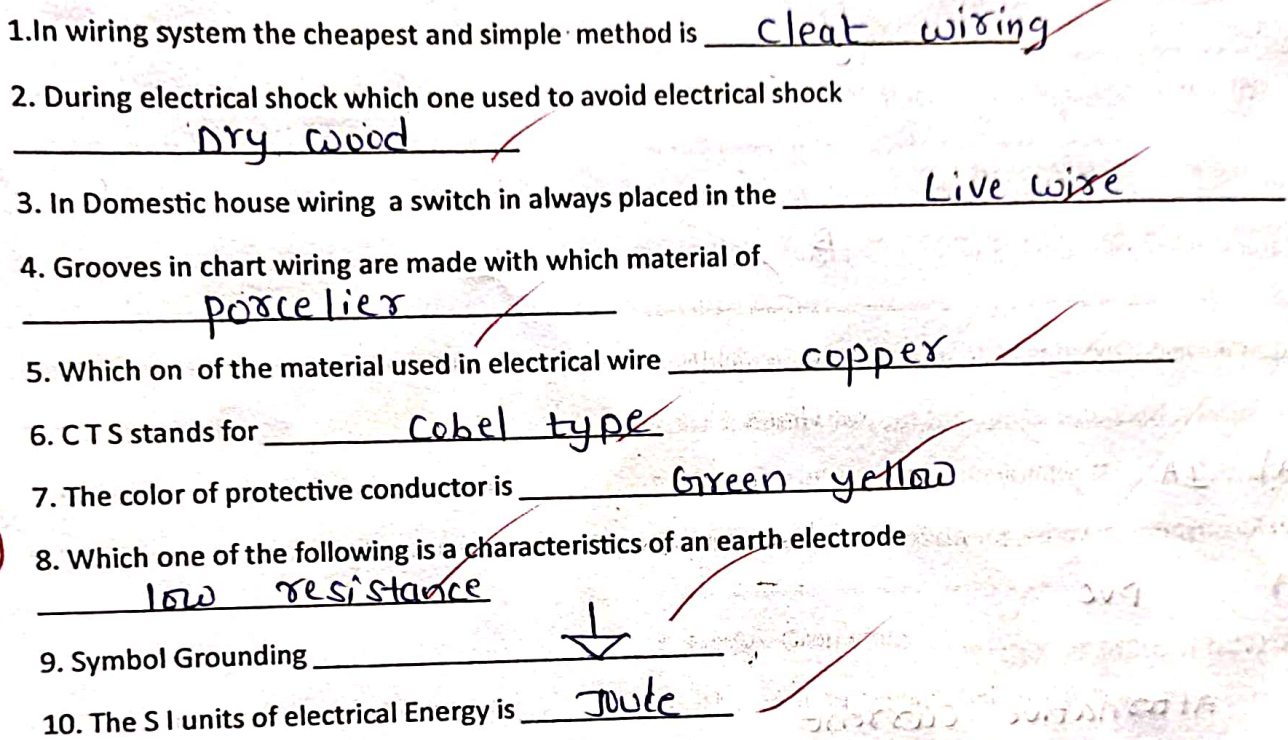 1.In wiring system the cheapest and simple method is Cleat wiring
2. During electrical shock which one used to avoid electrical shock
Dry wood
3. In Domestic house wiring a switch in always placed in the Live wire
4. Grooves in chart wiring are made with which material of
porcelier
5. Which on of the material used in electrical wire copper
6. C T S stands for Cobel type
7. The color of protective conductor is Green yellow
8. Which one of the following is a characteristics of an earth electrode
low resistance
9. Symbol Grounding
10. The S I units of electrical Energy is Joule